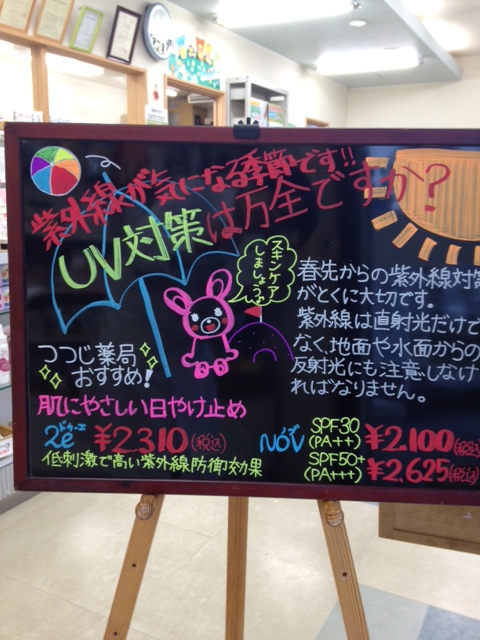 紫外線が気になる季節です!!
UV対策は万全ですか?
スキンケア
しましょうネ
春先からの紫外線対策
がとくに大切です。
紫外線は直射光だけで
なく、地面や水面からの
反射光にも注意しなけ
ればなりません。
つつじ薬局
おすすめ!
肌にやさしい日やけ止め
2e ドゥーエ ¥2310(税込)
低刺激で高い紫外線防御効果
NOV ノブ SPF30 (PA++) ¥2.100(税込)
SPF50+ (PA+++) ¥2.625(税込)